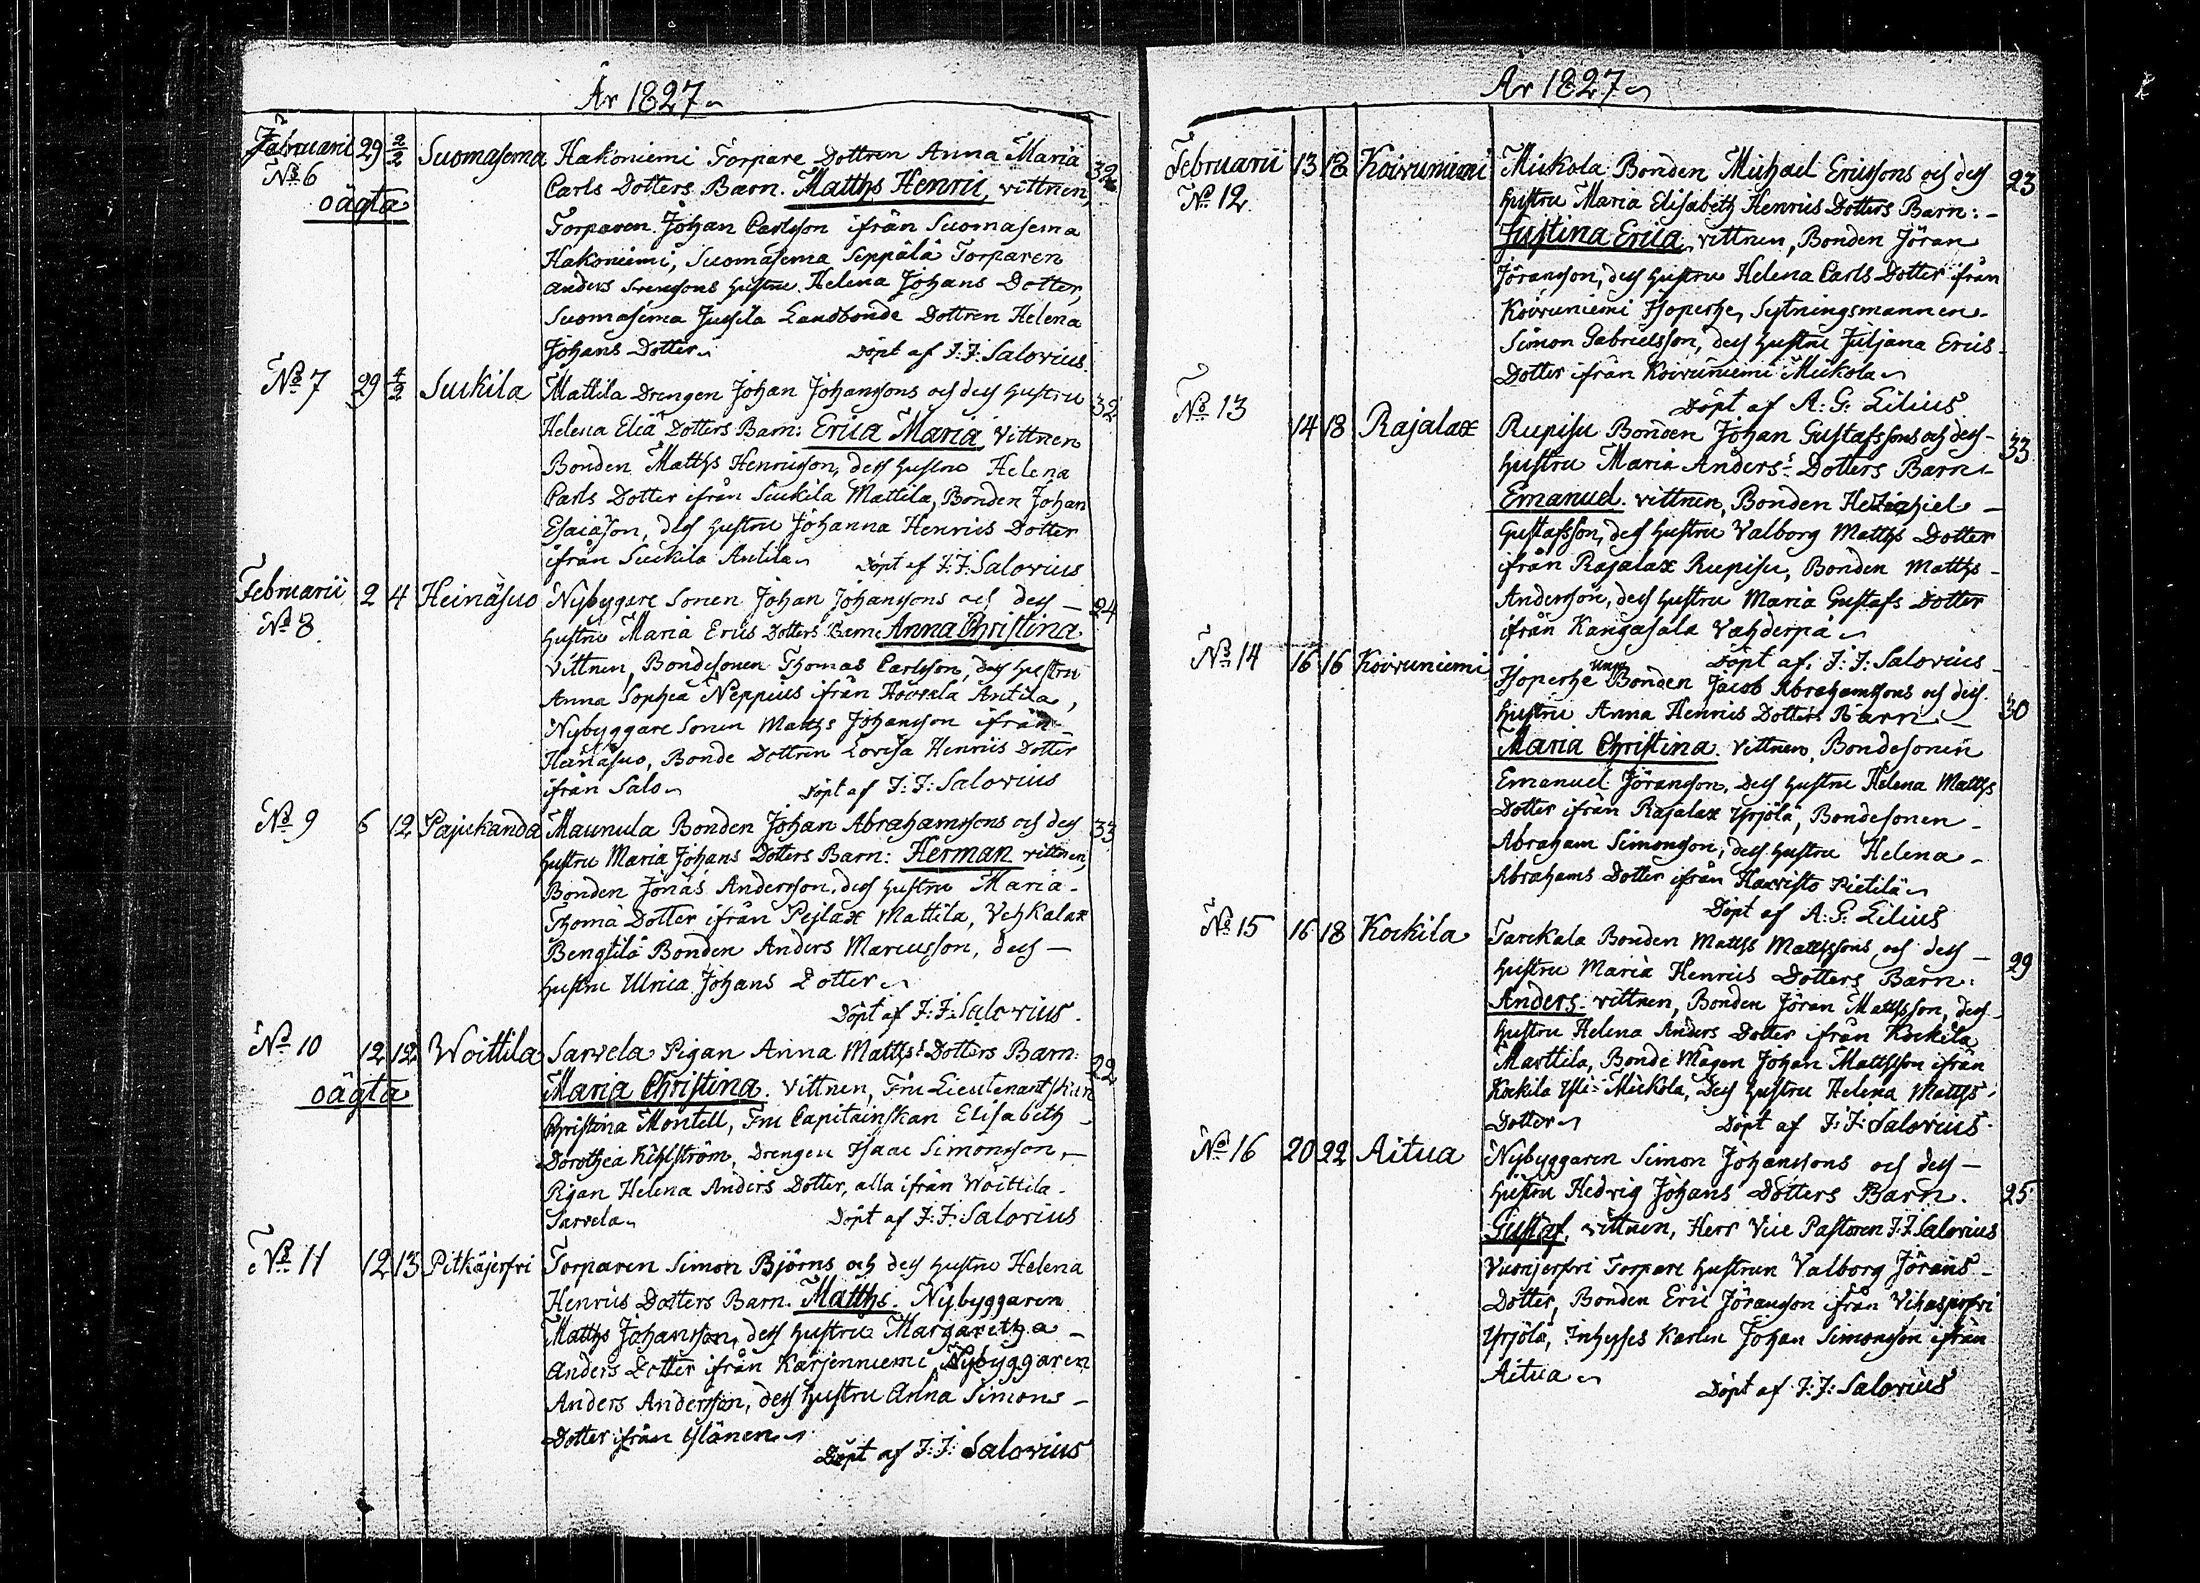 År 1827
Februarii 29 2/2 Suomasema Hakoniemi Torpare Dottren Anna Maria 32
No 6 Carls Dotters Barn. Matths Henric, vittnen,
oägta Torparen Johan Carlsson ifrån Suomasema
Hakoniemi, Suomasema Seppälä Torparen
Anders Svensons hustru Helena Johans Dotter,
Suomasema Jussila Landbonde Dottren Helena
Johans Dotter Döpt af J: J: Salovius.
No 7 29 4/2 Suikila Mattila Drengen Johan Johanssons och dess hustru 32
Helena Eliæ Dotters Barn: Erica Maria Vittnen
Bonden Matths Henricsson, dess hustru Helena
Carls Dotter ifrån Suikila Mattila, Bonden Johan
Esaiasson, dess hustru Johanna Henrics Dotter
ifrån Suikila Antila Döpt af J: J: Salovius
Februarii 2 4 Heinäsuo Nybygare Sonen Johan Johanssons och dess 24
No 8 hustru Maria Erics Dotters Barn: Anna Christina
Vittnen, Bondesonen Thomas Carlsson, dess hustru
Anna Sophea Neppius ifrån Antila,
Nybyggare Sonen Matths Johansson ifrån
Heinäsuo, Bonde Dottren Lovisa Henrics Dotter
ifrån Salo Döpt af J: J: Salovius
No 9 6 12 Pajukanda Maunula Bonden Johan Abrahamssons och dess 33
hustru Maria Johans Dotters Barn: Herman vittnen,
Bonden Jonas Andersson, dess hustru Maria
Thomæ Dotter ifrån Pejlax Mattila, Vehkalax
Bengtilä Bonden Anders Marcusson, dess
hustru Ulrica Johans Dotter
Döpt af J: J: Salovius.
No 10 12 12 Woittila Sarvela Pigan Anna Matths Dotters Barn: 22
oägta Maria Christina. Vittnen, Fru Lieutenantskan
Christina Montell, Fru Capitainskan Elisabeth
Dorothea Kihlström, Drengen Isaac Simonsson,
Pigan Helena Anders Dotter, alla ifrån Woittila
Sarvela Döpt af J: J: Salovius
No 11 12 13 Pitkäjerfvi Torparen Simon Björns och dess hustru Helena
Henrics Dotters Barn. Matths. Nybyggaren
Matths Johansson, dess hustru Margaretha
Anders Dotter ifrån Karjenniemi, Nybyggaren
Anders Andersson, dess hustru Anna Simons
Dotter ifrån Ylänen
Döpt af J: J: Salovius
År 1827
Februarii 13 18 Koivuniemi Mickola Bonden Michael Ericssons och dess 23
No 12 hustru Maria Elisabeth Henrics Dotters Barn:
Justina Erica, vittnen, Bonden Jöran
Jöransson, dess hustru Helena Carls Dotter ifrån
Koivuniemi Isoperhe, Sytningsmannen
Simon Gabrielsson, dess hustru Juljana Erics
Dotter ifrån Koivuniemi Mickola
Döpt af A: G: Lilius
No 13 14 18 Rajalax Rupisu Bonden Johan Gustafssons och dess 33
hustru Maria Anders Dotters Barn
Emanuel. vittnen, Bonden Heziechiel
Gustafsson, dess hustru Valborg Matths Dotter
ifrån Rajalax Rupisu, Bonden Matths
Andersson, dess hustru Maria Gustafs Dotter
ifrån Kangasala Vähderpä
Döpt af J: J: Salovius
No 14 16 16 Koivuniemi Isoperhe unge Bonden Jacob Abrahamssons och dess 30
hustru Anna Henrics Dotters Barn
Maria Christina. Vittnen, Bondesonen
Emanuel Jöransson, dess hustru Helena Matths
Dotter ifrån Rajalax Yrjölä, Bondesonen
Abraham Simonsson, dess hustru Helena
Abrahams Dotter ifrån Haavisto Pietilä
Döpt af A: G: Lilius
No 15 16 18 Kockila Tarckala Bonden Matths Matthssons och dess 29
hustru Maria Henrics Dotters Barn:
Anders. vittnen, Bonden Jöran Mattsson, dess
hustru Helena Anders Dotter ifrån Kockila
Marttila, Bonde Mågen Johan Mattsson ifrån
Kockila Yli-Mickola, Dess hustru Helena Matths
Dotter Döpt af J: J: Salovius
No 16 20 22 Aitua Nybyggaren Simon Johanssons och dess
hustru Hedvig Johans Dotters Barn. 25
Gustaf, vittnen, Herr Vice Pastoren J. J. Salovius
Vuonjerfvi Torpare hustrun Valborg Jörans
Dotter, Bonden Eric Jöransson ifrån Vihasjerfvi
Yrjölä, Inhyses Karlen Johan Simonsson ifrån
Aitua Döpt af J: J: Salovius